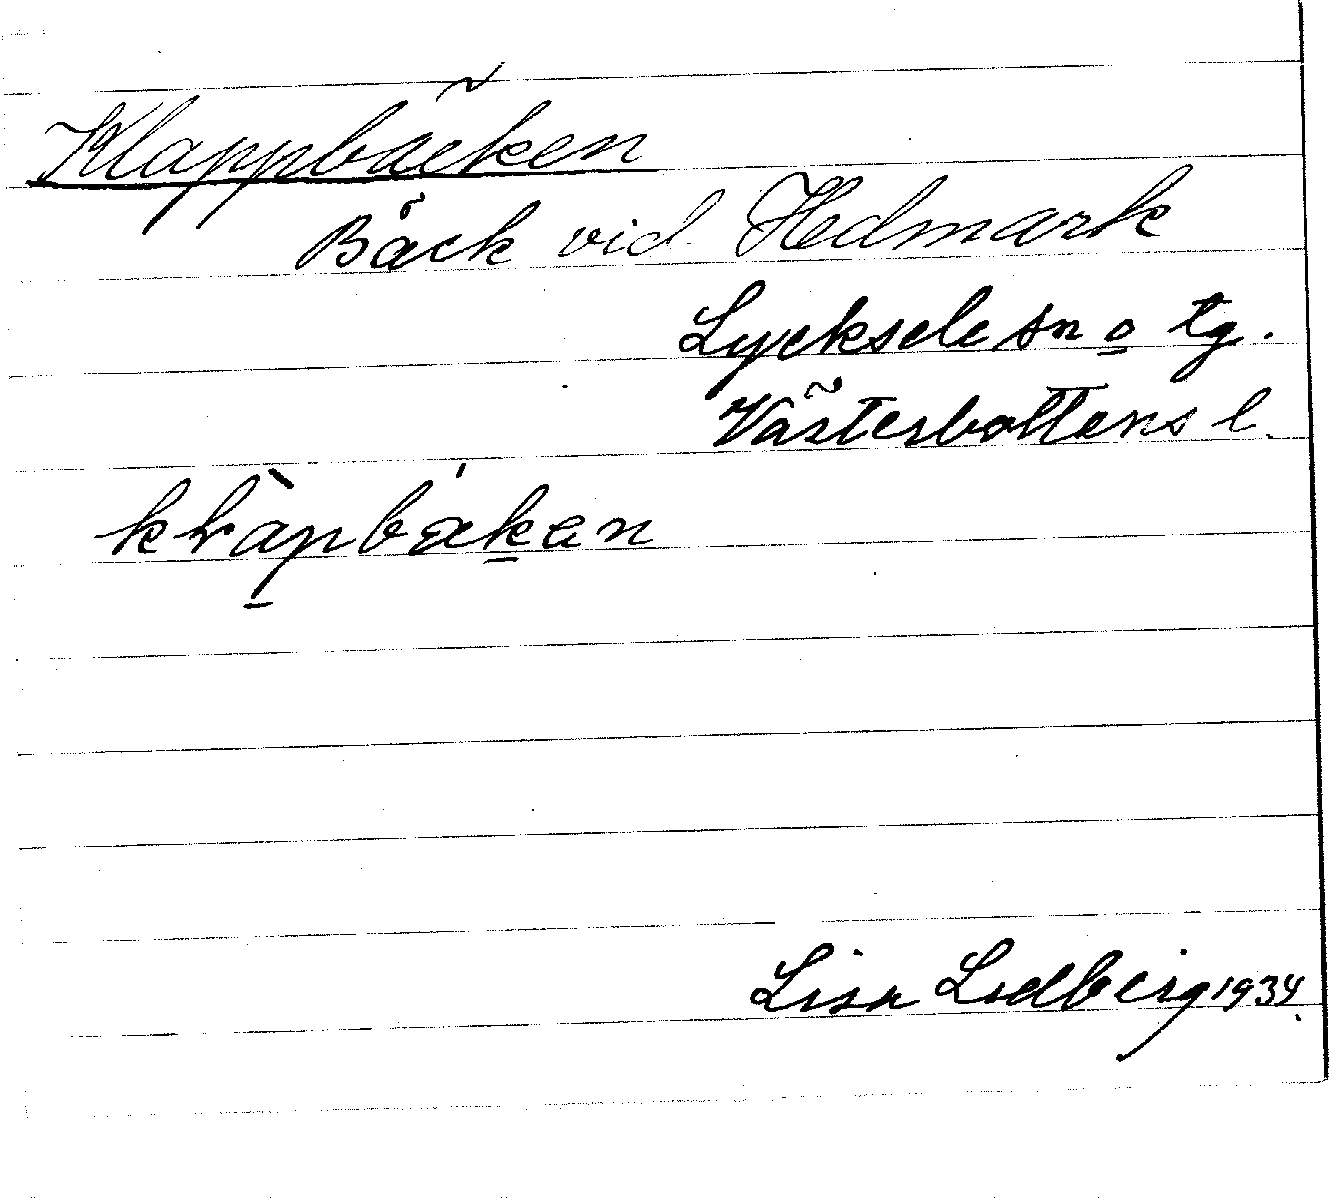 Klappbäcken
Bäck vid Hedmark
Lycksele sn o tg.
Västerbottens l.
Lisa Lidberg 1934.